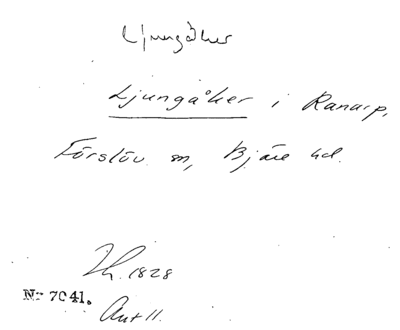 Ljungåker
Ljungåker i Ranarp,
Förslöv sn, Bjäre hd.
1828
Nr 7041.
Ant 11.